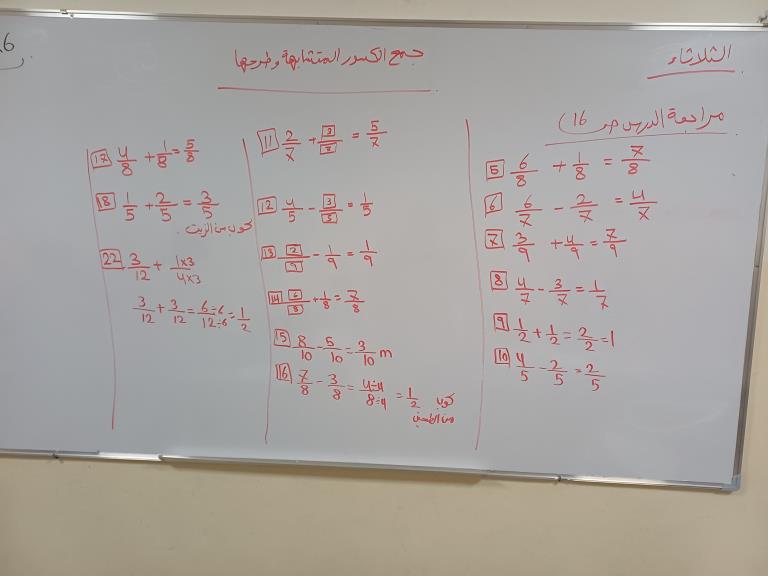 الثلاثاء
جمع الكسور المتشابهة وطرحها
مراجعة الدرس ص 16)
5 6/8 + 1/8 = 7/8
6 6/7 - 2/7 = 4/7
7 3/9 + 4/9 = 7/9
8 4/7 - 3/7 = 1/7
9 1/2 + 1/2 = 2/2 = 1
10 4/5 - 2/5 = 2/5
11 2/7 + 3/7 = 5/7
12 4/5 - 3/5 = 1/5
13 2/9 - 1/9 = 1/9
14 6/8 + 1/8 = 7/8
15 8/10 - 5/10 = 3/10 m
16 7/8 - 3/8 = 4÷4/8÷4 = 1/2 كوب
من الطحين
17 4/8 + 1/8 = 5/8
18 1/5 + 2/5 = 3/5
كوب من الزيت.
22 3/12 + 1x3/4x3
3/12 + 3/12 = 6÷6/12÷6 = 1/2